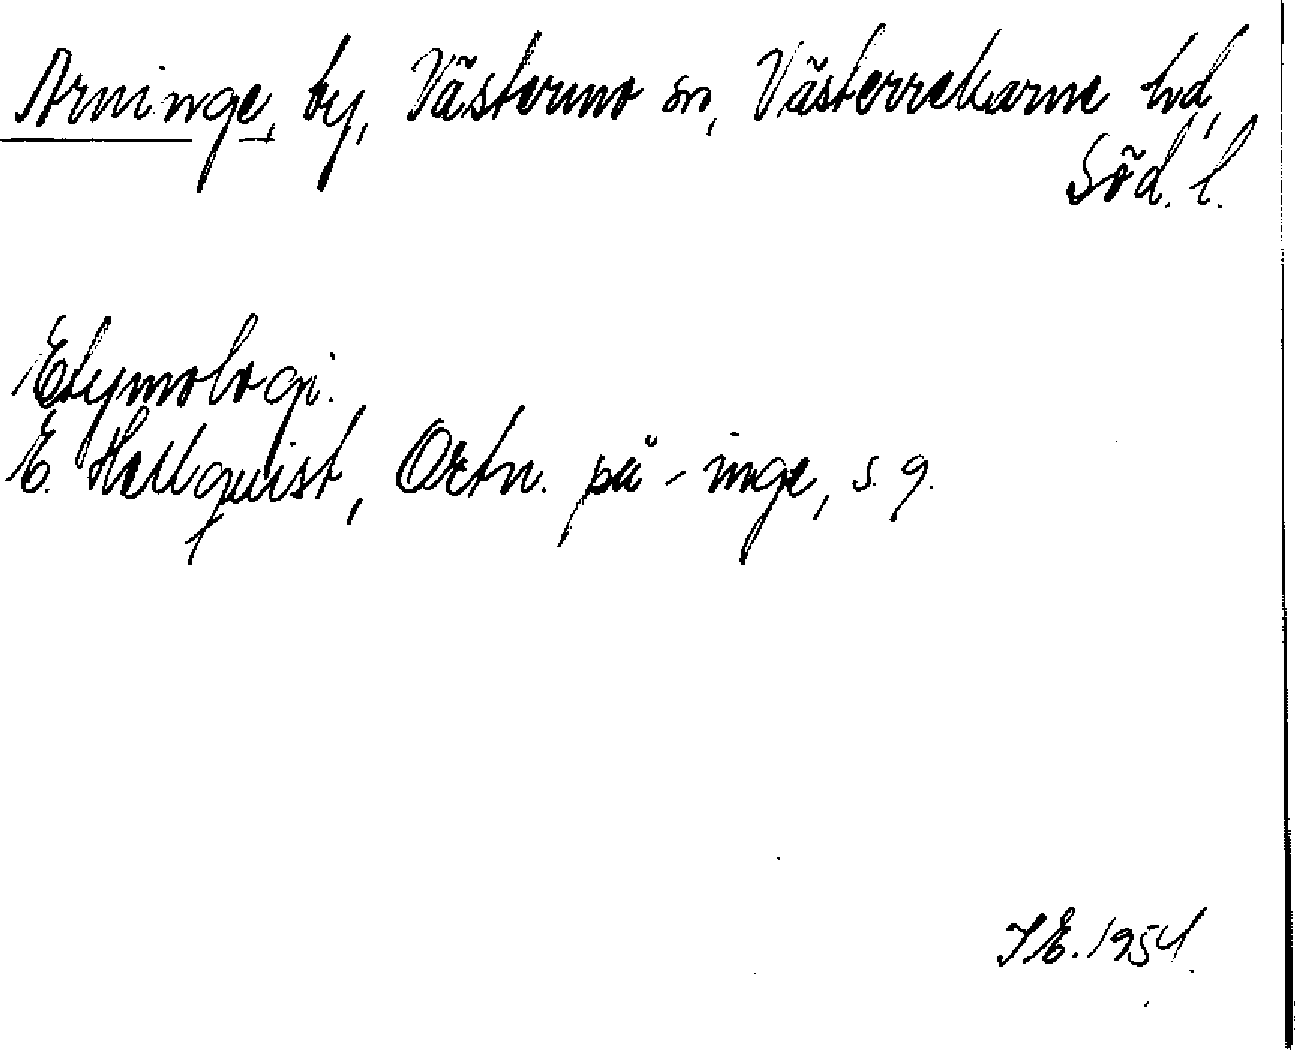 Arninge, by, Västermo sn, Västerrekarne hd,
Söd. l.
Etymologi.
E. Hellquist, Ortn. på -inge, s. 9.
I E. 1954.